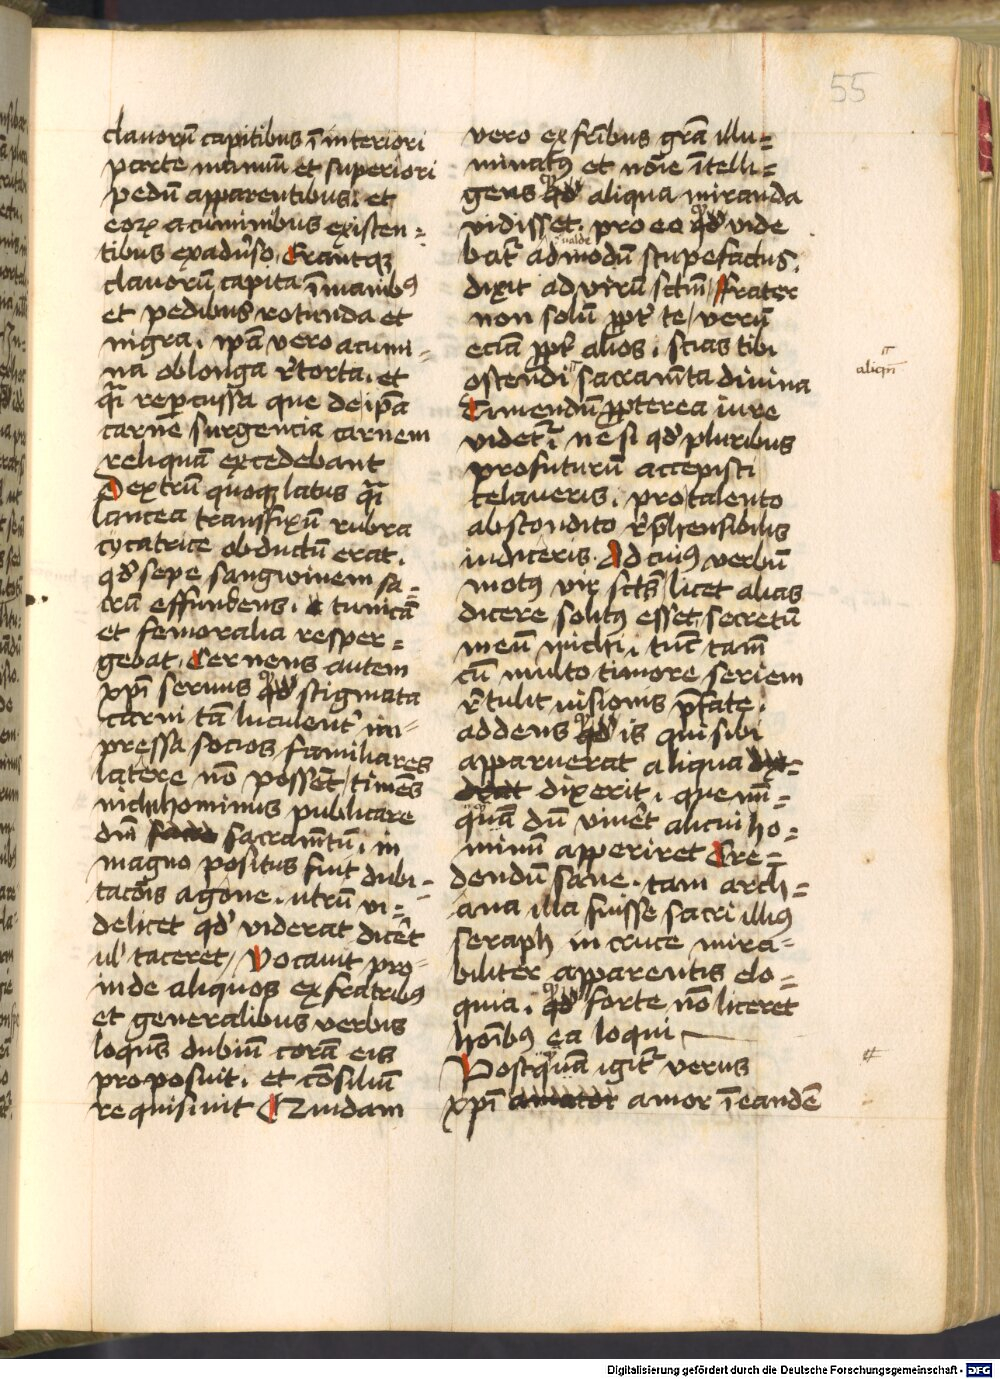 55
clauorū capitibus ī interiori
parte manuū et superiori
pedū apparentibus. et
eoꝝ acuminibus existen=
tibus exadūso. Erantqꝫ
clauorū capita ī manibꝰ
et pedibus rotunda et
nigra. ip̄a vero acumi=
na oblonga r̄torta. et
q̄i rep̄cussa que de ip̄a
carne surgencia carnem
reliquā excedebant
Dextrū quoqꝫ latus q̄i
lancea transfixū rubra
cycatrice obductū erat.
qd̄ sepe sangwinem sa=
crū effundens. tunicā
et femoralia resper=
gebat. Cernens autem
xp̄i seruus qd̄ stigmata
carni tā luculent̄ im=
pressa socios familiares
latere nō possēt / timēs
nichilhominus publicare
dn̄i sacramn̄tū. in
magno positus fuit dubi=
tacōis agone. utrū vi=
delicet qd̄ viderat dicēt
ul̄ taceret / Vocauit pro=
inde aliquos ex fratribꝰ
et generalibus verbis
loquēs dubiū corā eis
proposuit. et cōsiliū
requisiuit Quidam
vero ex fr̄ibus gr̄a illu=
minatꝰ et nōie ītelli=
gens qd̄ aliqua miranda
vidisset. pro eo qd̄ vide
valde
bat̄ admodū stupefactus.
dixit ad virū sctm̄ / Frater
non solū ppt̄ te / verū
eciā ppt̄ alios. scias tibi
ostendi sacramn̄ta diuina
aliqn̄
Timendū ppterea iure
videt̄ ne si qd̄ pluribus
profuturū accepisti
celaueris. pro talento
abscondito r̄p̄hensibilis
iudiceris. Ad cuiꝰ verbū
motꝰ vir sctūs licet alias
dicere solitꝰ esset / secretū
meū michi. tūc tam̄
cū multo timore seriem
r̄tulit uisionis p̄fate.
addens qd̄ is qui sibi
apparuerat aliqua
dixerit. que nū=
quā dū viuēt alicui ho=
minū apperiret Cre=
dendū sane. tam arch=
ana illa fuisse sacri illiꝰ
seraph in cruce mira=
biliter apparentis elo=
quia. qd̄ forte nō liceret
hoībꝰ ea loqui
Postquā igit̄ verus
xp̄i amor ī eandē
Digitalisierung gefördert durch die Deutsche Forschungsgemeinschaft - DFG